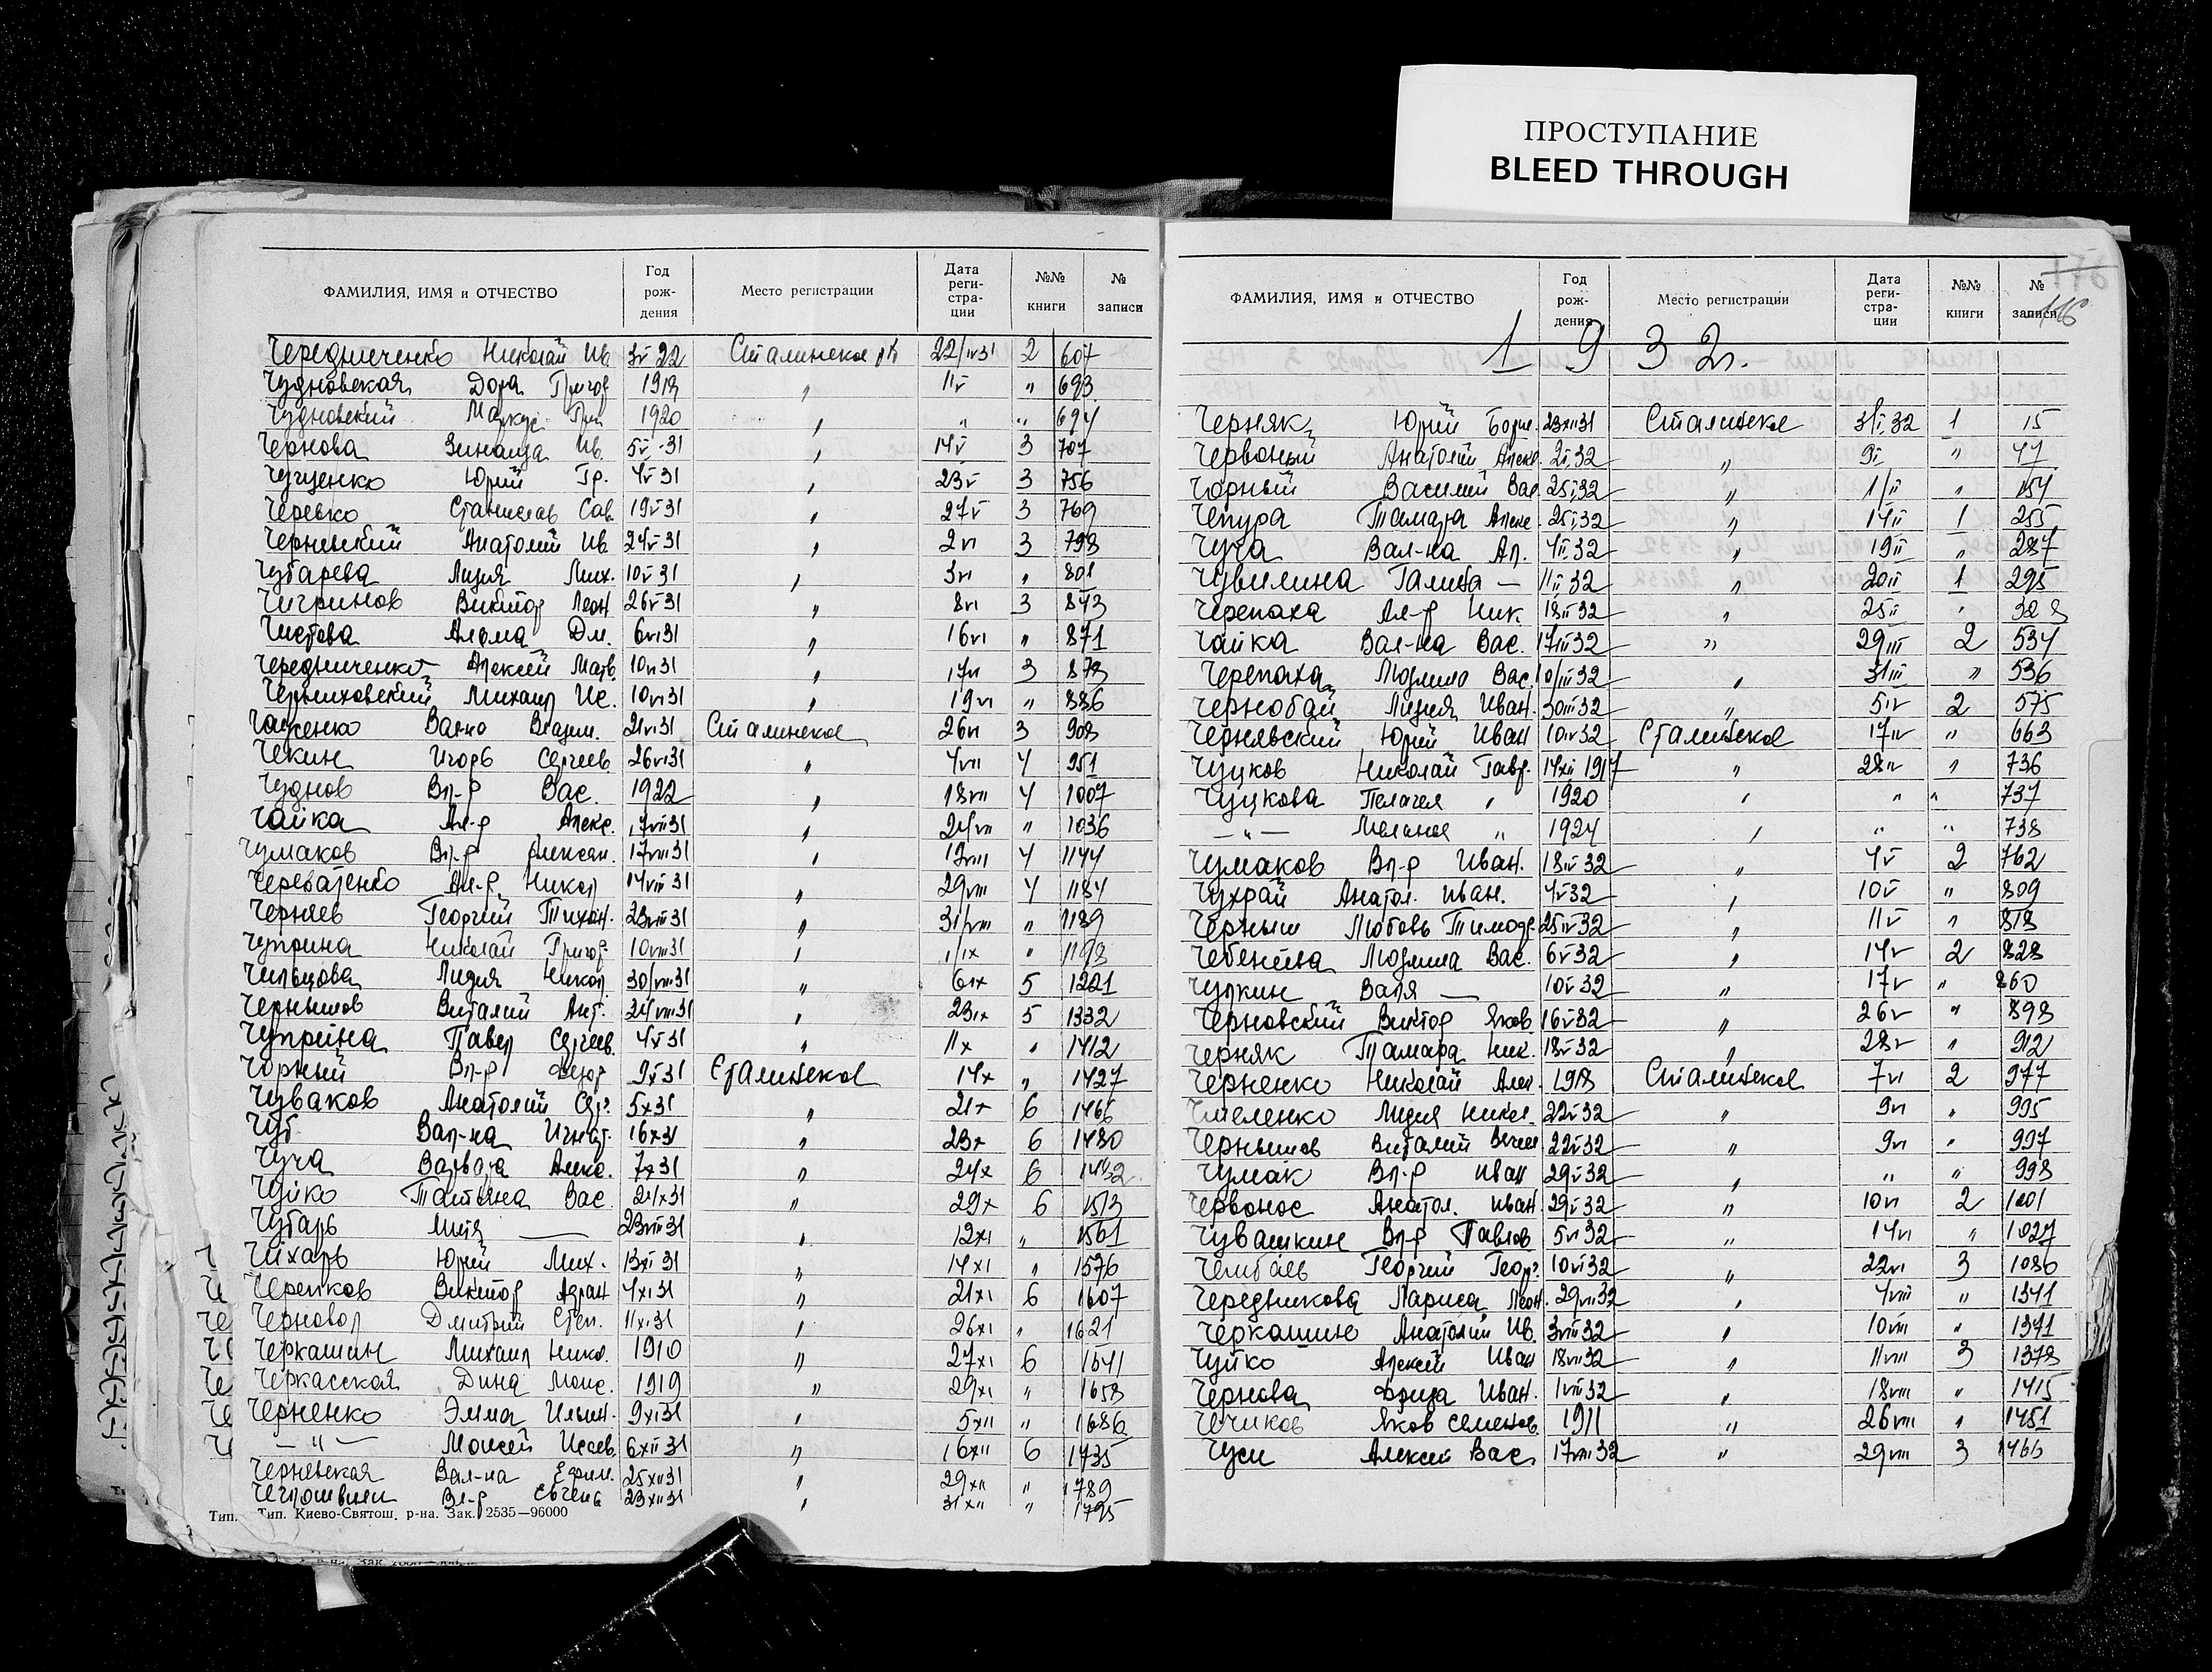 ПРОСТУПАНИЕ
BLEED THROUGH
ФАМИЛИЯ, ИМЯ и ОТЧЕСТВО Год рож- дения Место регистрации Дата реги- стра- ции №№ книги № записи
Чередниченко Николай Ив. 22 Сталинское 22/IV31 2 607
Чудновская Дора Григор 1919 " 11V " 693
Чудновский Маркус Гри 1920 " " " 694
Чернова Зинаида Ив. 5V-31 " 14V 3 707
Юрий Гр. 4V31 " 23V 3 756
Черевко Станислав Сав. 19V31 " 27V 3 769
Анатолий Ив. 24V31 " 2VI 3 798
Чубарева Лидия Мих. 10V31 " 3VI " 801
Чигринов Виктор Леон 26V31 " 8VI 3 843
Чистова Дм. 6VI31 " 16VI " 871
Чередниченко Алексей Матв. 10VI31 " 17VI 3 873
Черниховский Михаил Ис. 10VI31 " 19VI " 886
21VI31 Сталинское 26VI 3 908
Чекин Игорь Сергеев. 26VI31 " 4VII 4 951
Чуднов Вл-р Вас. 1922 " 18VII 4 1007
Чайка Ал-р Алекс. 7VII31 " 24VII " 1036
Чумаков Вл-р Алексан. 17VIII31 " 4 1144
Череватенко Ал-р Никол 14VIII31 " 29VIII 4 1184
Черняев Георгий Тихон. 23VIII31 " 31/VIII " 1189
Чуприна Николай Григор. 10VIII31 " 1/IX " 1193
Чильцова Лидия Никол 30/VIII31 " 6IX 5 1221
Чернышов Виталий Ант. 24/VIII31 " 23IX 5 1332
Чуприна Павел Сергеев. 31 " 11X " 1412
Чорный Вл-р Федор. 31 Сталинское 14X " 1427
Чуваков Анатолий Сер. 5X31 " 21X 6 1466
Чуб Вал-на Игнат. 16X31 " 23X 6 1480
Чуча Варвара Алекс. 7X31 " 24X 6
Чуйко Татьяна Вас. 24X31 " 29X 6 1513
Чубарь 23VII31 " 12XI " 1561
Чихарь Юрий Мих. 13XI31 " 14XI " 1576
Черепков Виктор Адиан 4XI31 " 21XI 6 1607
Черновол Дмитрий Степ. 11XI31 " 26XI " 1621
Черкашин Михаил Никол. 1910 " 27XI 6 1641
Черкасская Дина Моис. 1919 " 29XI " 1658
Черненко Эмма Ильин. 9XI31 " 5XII " 1686
— " — Моисей Исаев. 6XII31 " 16XII 6 1735
Черневская Вал-на Ефим. 25XII31 " 29XII " 1789
Вл-р Евгень 23XII31 " 31XII " 1795
Тип. Тип. Киево-Святош. р-на. Зак. 2535—96000
ФАМИЛИЯ, ИМЯ и ОТЧЕСТВО Год рож- дения Место регистрации Дата реги- стра- ции №№ книги № записи
116
1 9 3 2 г.
Черняк Юрий Борис. 23XII31 Сталинское 3/I,32 1 15
Червоный Анатолий Алекс. 2I,32 " 9I " 47
Чорный Василий Вас. 25I,32 " 1/II " 154
Чепура Тамара Алекс. 25I,32 " 14II 1 255
Чуча Вал-на Ал. 4II,32 " 19II " 287
Чувилина Галина — 11II,32 " 20II 1 295
Черепаха Ал-р Ник. 18II32 " 25II " 328
Чайка Вал-на Вас. 17III32 " 29III 2 534
Черепаха Людмила Вас. 10/III32 " 31III " 536
Чернобай Лидия Иван. 30III32 " 5IV 2 575
Чернявский Юрий Иван 10IV32 Сталинское 17IV " 663
Чуцков Николай Гавр. 14XII 1917 " 28IV " 736
Чуцкова Пелагея " 1920 " " " 737
— " — Меланья " 1924 " " " 738
Чумаков Вл-р Иван. 18IV32 " 4V 2 762
Чухрай Анатол. Иван. 4V32 " 10V " 809
Черныш Любовь Тимоф. 25IV32 " 11V " 818
Людмила Вас. 6V32 " 14V 2 828
Чулкин Валя — 10V32 " 17V " 860
Черновский Виктор Яков. 16V32 " 26V " 898
Черняк Тамара Ник. 18V32 " 28V " 912
Черненко Николай Алек. 1918 Сталинское 7VI 2 977
Лидия Никол. 22V32 " 9VI " 995
Чернышов Виталий 22V32 " 9VI " 997
Чумак Вл-р Иван 29V32 " " " 998
Червонос Анатол. Иван. 29V32 " 10VI 2 1001
Чувашкин Вл-р Павлов 5VI32 " 14VI " 1027
Георгий Георг. 10VI32 " 22VI 3 1086
Чередникова Лариса Леон. 29VII32 " 4VIII " 1341
Черкашин Анатолий Ив. 3VIII32 " 10VIII " 1371
Чуйко Алексей Иван 18VII32 " 11VIII 3 1378
Чернова Фрида Иван. 1VIII32 " 18VIII " 1415
Яков Семенов. 1911 " 26VIII " 1451
Алексей Вас. 17VIII32 " 29VIII 3 1466